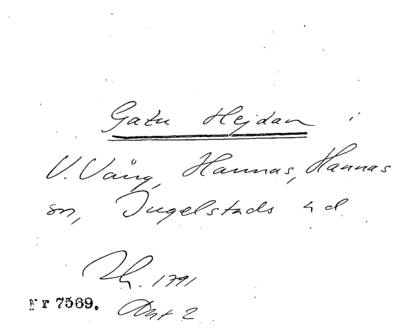 Gatu Hejdan i
V. Vång, Hannas, Hannas
sn, Ingelstads hd.
Lh. 1791
Nr 7569. Avt 2